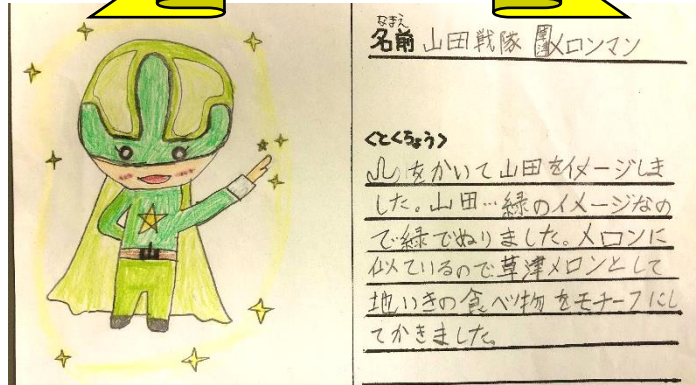 なまえ
名前 山田戦隊 草津メロンマン
<とくちょう>
をかいて山田をイメージしま
した。山田…緑のイメージなの
で緑でぬりました。メロンに
似ているので草津メロンとして
地いきの食べ物をモチーフにし
てかきました。